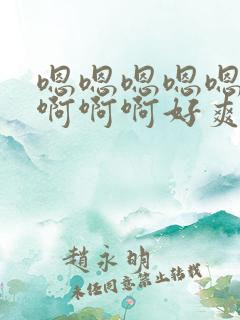 嗯嗯嗯嗯嗯
啊啊啊好爽
趙永明
未经同意禁止转载